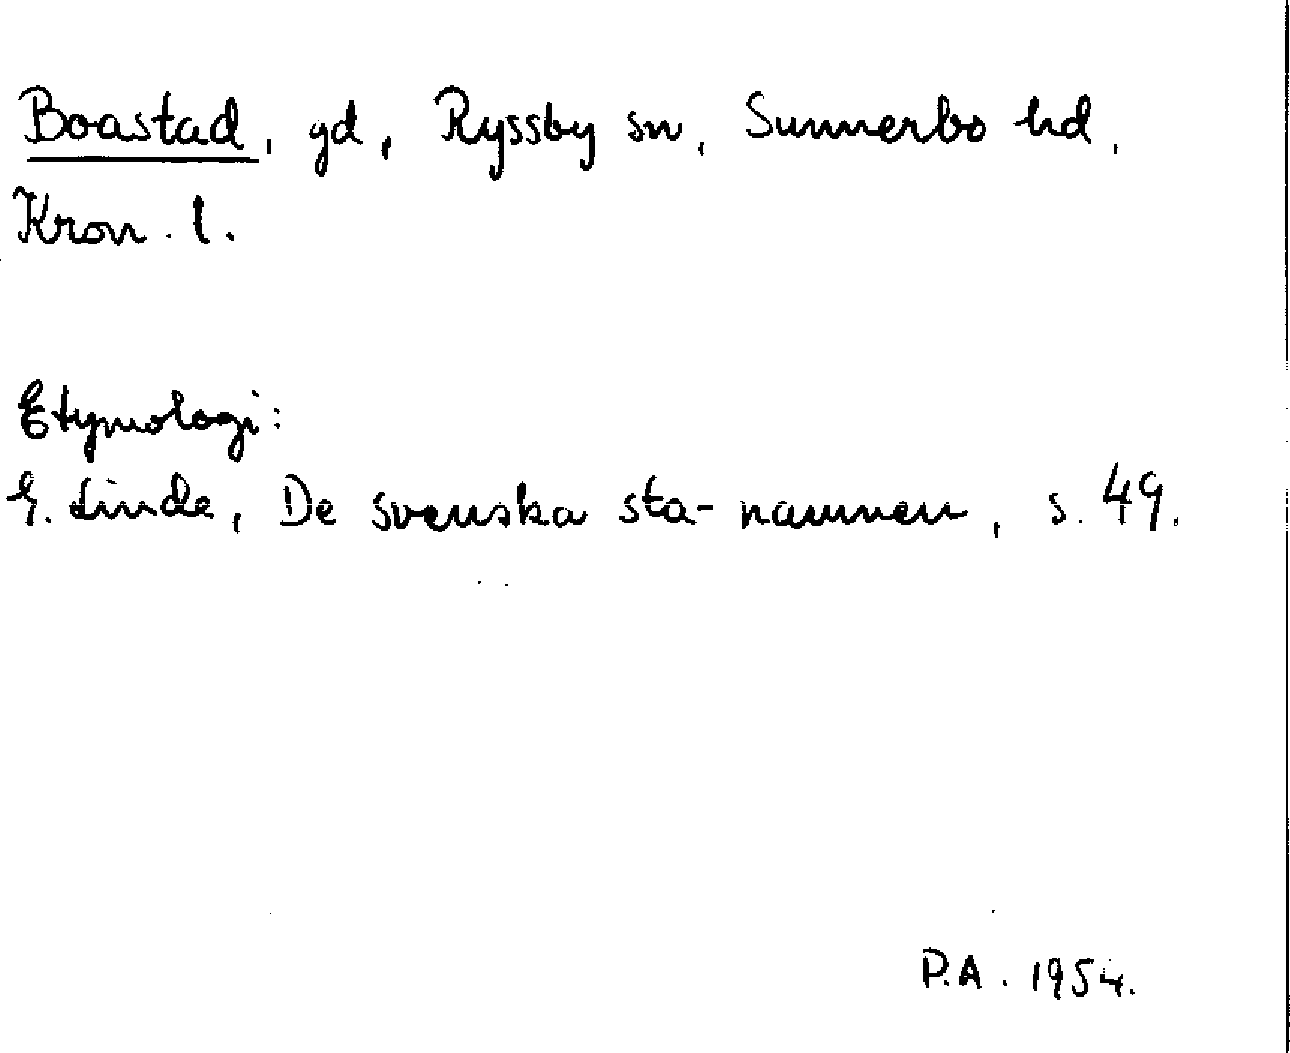 Boastad, gd, Ryssby sn, Sunnerbo hd,
Kron. l.
Etymologi:
G. Linde, De svenska sta-namnen, s. 49.
P.A. 1954.